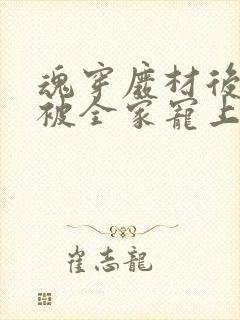 魂穿廢材後
被全家寵上
崔志龍